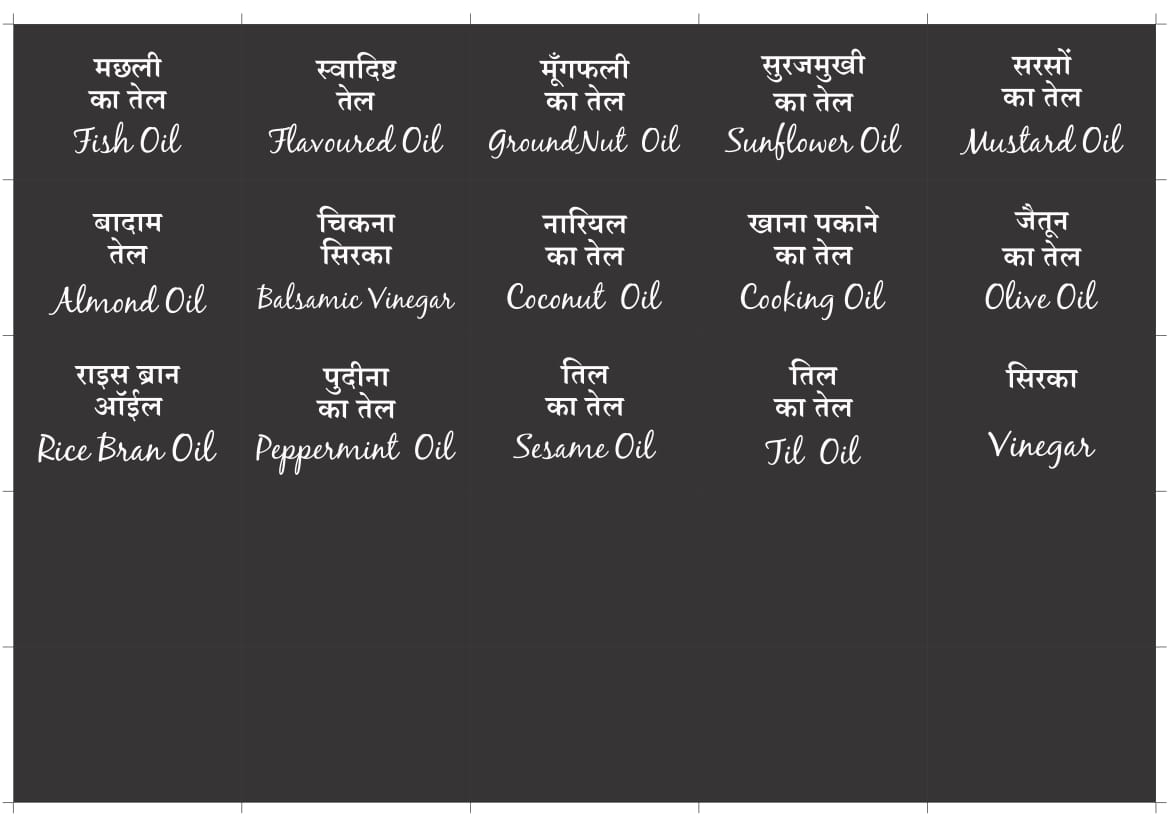 मछली
का तेल
Fish Oil
स्वादिष्ट
तेल
Flavoured Oil
मूँगफली
का तेल
GroundNut Oil
सुरजमुखी
का तेल
Sunflower Oil
सरसों
का तेल
Mustard Oil
बादाम
तेल
Almond Oil
चिकना
सिरका
Balsamic Vinegar
नारियल
का तेल
Coconut Oil
खाना पकाने
का तेल
Cooking Oil
जैतून
का तेल
Olive Oil
राइस ब्रान
ऑईल
Rice Bran Oil
पुदीना
का तेल
Peppermint Oil
तिल
का तेल
Sesame Oil
तिल
का तेल
Til Oil
सिरका
Vinegar